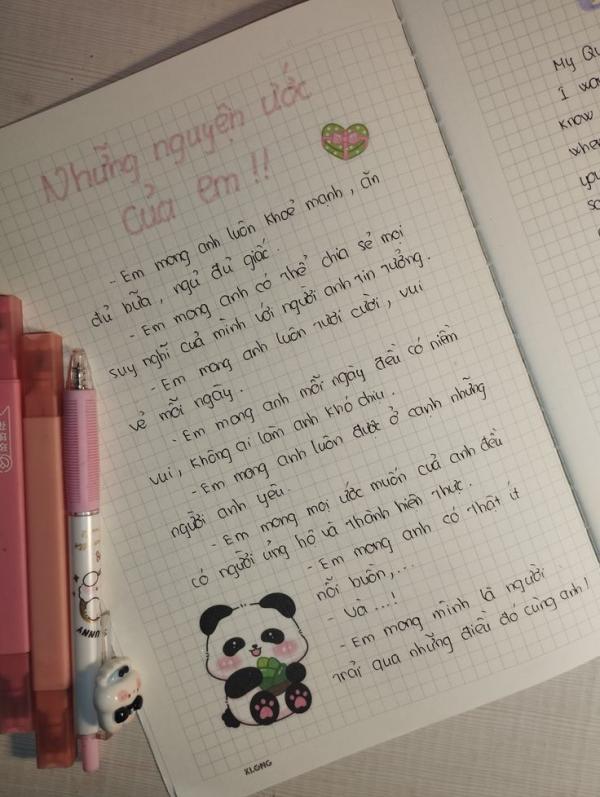 Những nguyện ước
của em !!
- Em mong anh luôn khoẻ mạnh, ăn
đủ bữa, ngủ đủ giấc.
- Em mong anh có thể chia sẻ mọi
suy nghĩ của mình với người anh tin tưởng.
- Em mong anh luôn tươi cười, vui
vẻ mỗi ngày.
- Em mong anh mỗi ngày đều có niềm
vui, không ai làm anh khó chịu.
- Em mong anh luôn được ở cạnh những
người anh yêu.
- Em mong mọi ước muốn của anh đều
có người ủng hộ và thành hiện thực.
- Em mong anh có thật ít
nỗi buồn,...
- Và ...!
- Em mong mình là người
trải qua những điều đó cùng anh!
XLONG
My Qu
I wa
know
whe
you
so
UNNY